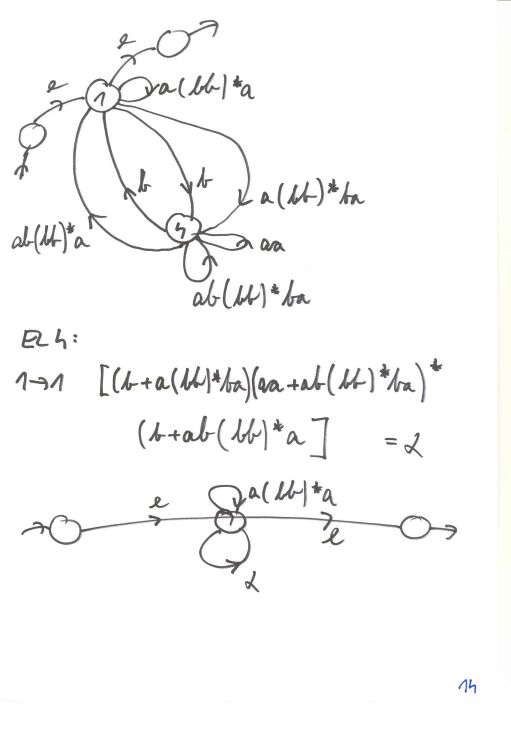 e
e
1
a(bb)*a
b
b
a(bb)*ba
4
ab(bb)*a
aa
ab(bb)*ba
EL 4:
1→1 [(b+a(bb)*ba)(aa+ab(bb)*ba)*
(b+ab(bb)*a] = α
e
a(bb)*a
1
e
α
14